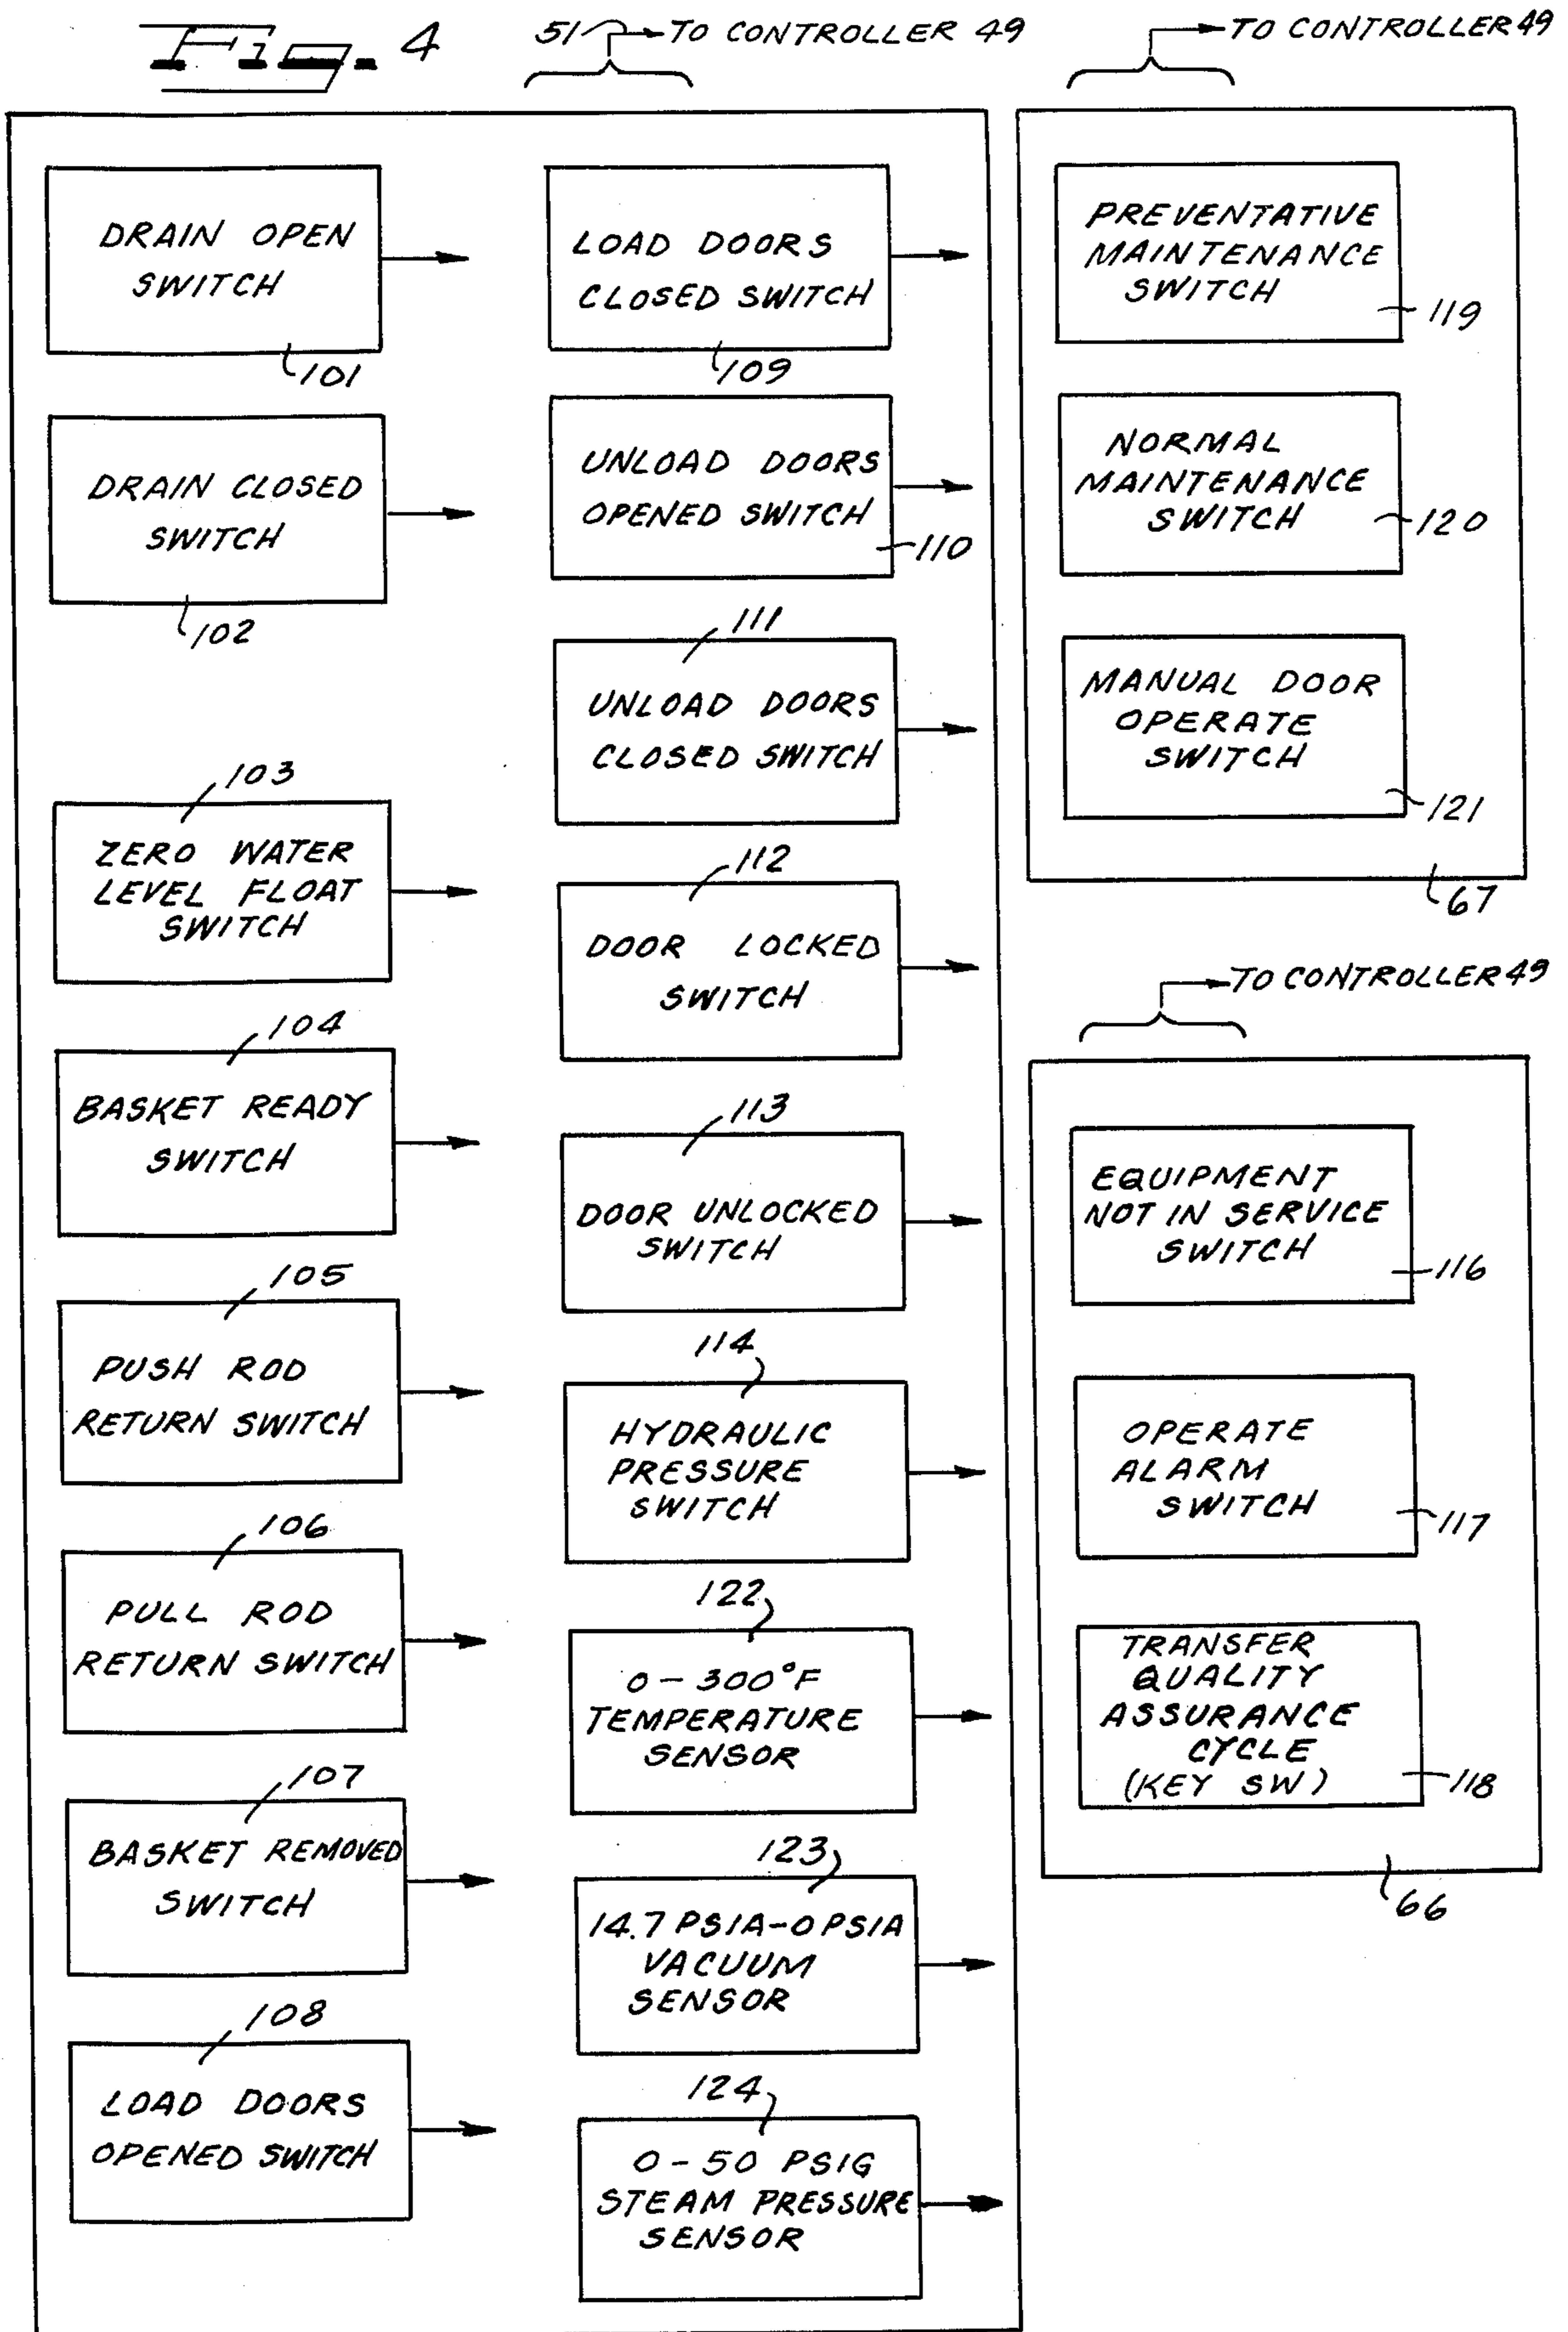 Fig. 4
51 TO CONTROLLER 49
TO CONTROLLER 49
DRAIN OPEN
SWITCH
101
DRAIN CLOSED
SWITCH
102
103
ZERO WATER
LEVEL FLOAT
SWITCH
104
BASKET READY
SWITCH
105
PUSH ROD
RETURN SWITCH
106
PULL ROD
RETURN SWITCH
107
BASKET REMOVED
SWITCH
108
LOAD DOORS
OPENED SWITCH
LOAD DOORS
CLOSED SWITCH
109
UNLOAD DOORS
OPENED SWITCH
110
111
UNLOAD DOORS
CLOSED SWITCH
112
DOOR LOCKED
SWITCH
113
DOOR UNLOCKED
SWITCH
114
HYDRAULIC
PRESSURE
SWITCH
122
0-300°F
TEMPERATURE
SENSOR
123
14.7 PSIA-0 PSIA
VACUUM
SENSOR
124
0-50 PSIG
STEAM PRESSURE
SENSOR
PREVENTATIVE
MAINTENANCE
SWITCH
119
NORMAL
MAINTENANCE
SWITCH
120
MANUAL DOOR
OPERATE
SWITCH
121
67
TO CONTROLLER 49
EQUIPMENT
NOT IN SERVICE
SWITCH
116
OPERATE
ALARM
SWITCH
117
TRANSFER
QUALITY
ASSURANCE
CYCLE
(KEY SW)
118
66